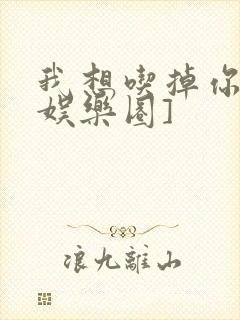 我想喫掉你
娛樂圈]
浪九離山